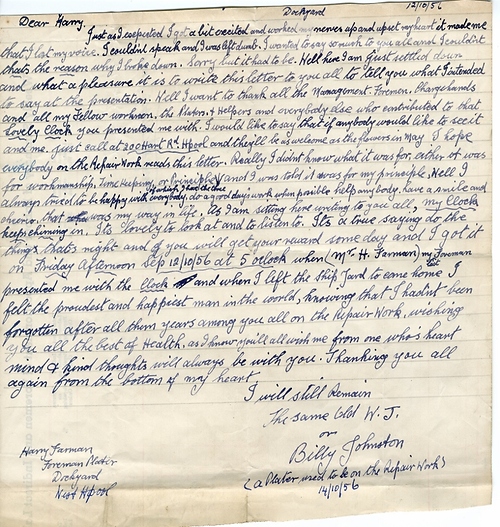 Dockyard
12/10/56
Dear Harry.
Just as I expected I got a bit excited and worked my nerves up and upset my heart it made me
that I lost my voice. I couldn't speak and I was left dumb. I wanted to say so much to you all and I couldn't
thats the reason why I broke down. Sorry but it had to be. Well here I am just settled down
and what a pleasure it is to write this letter to you all to tell you what I intended
to say at the presentation. Well I want to thank all the Management. Foremen, Chargehands
and all my Fellow workmen, the Platers, Helpers and everybody else who contributed to that
lovely clock you presented me with. I would like to say that if anybody would like to see it
and me. just call at 200 Hart Rd. Hpool and they'll be as welcome as the flowers in May. I hope
everybody on the Repair Work reads this letter. Really I didn't know what it was for either it was
for workmanship, time keeping, or principle, and I was told it was for my principle, Well I
always tried to be happy with everybody do a good day's work when posible help anybody, have a smile and
observe. that was my way in life, Its I am sitting here writing to you all, my clock
keeps chiming in. Its lovely to look at and to listen to. Its a true saying do the
things thats right and of you will get your reward some day and I got it
on Friday Afternoon Sep 12/10/56 at 5 oclock when (Mr. H. Farman) my Foreman
presented me with the clock and when I left the Ship Yard to come home I
felt the proudest and happiest man in the world, knowing that I hadn't been
forgotten after all them years among you all on the Repair Work, wishing
you all the best of Health, as I know you'll all wish me from one who's heart
mind & kind thoughts will always be with you. Thanking you all
again from the bottom of my heart
I will still Remain
The same old W. J.
or
Billy Johnston
(a Plater used to be on the Repair Work)
14/10/56
Harry Farman
Foreman Plater
Dockyard
West Hpool